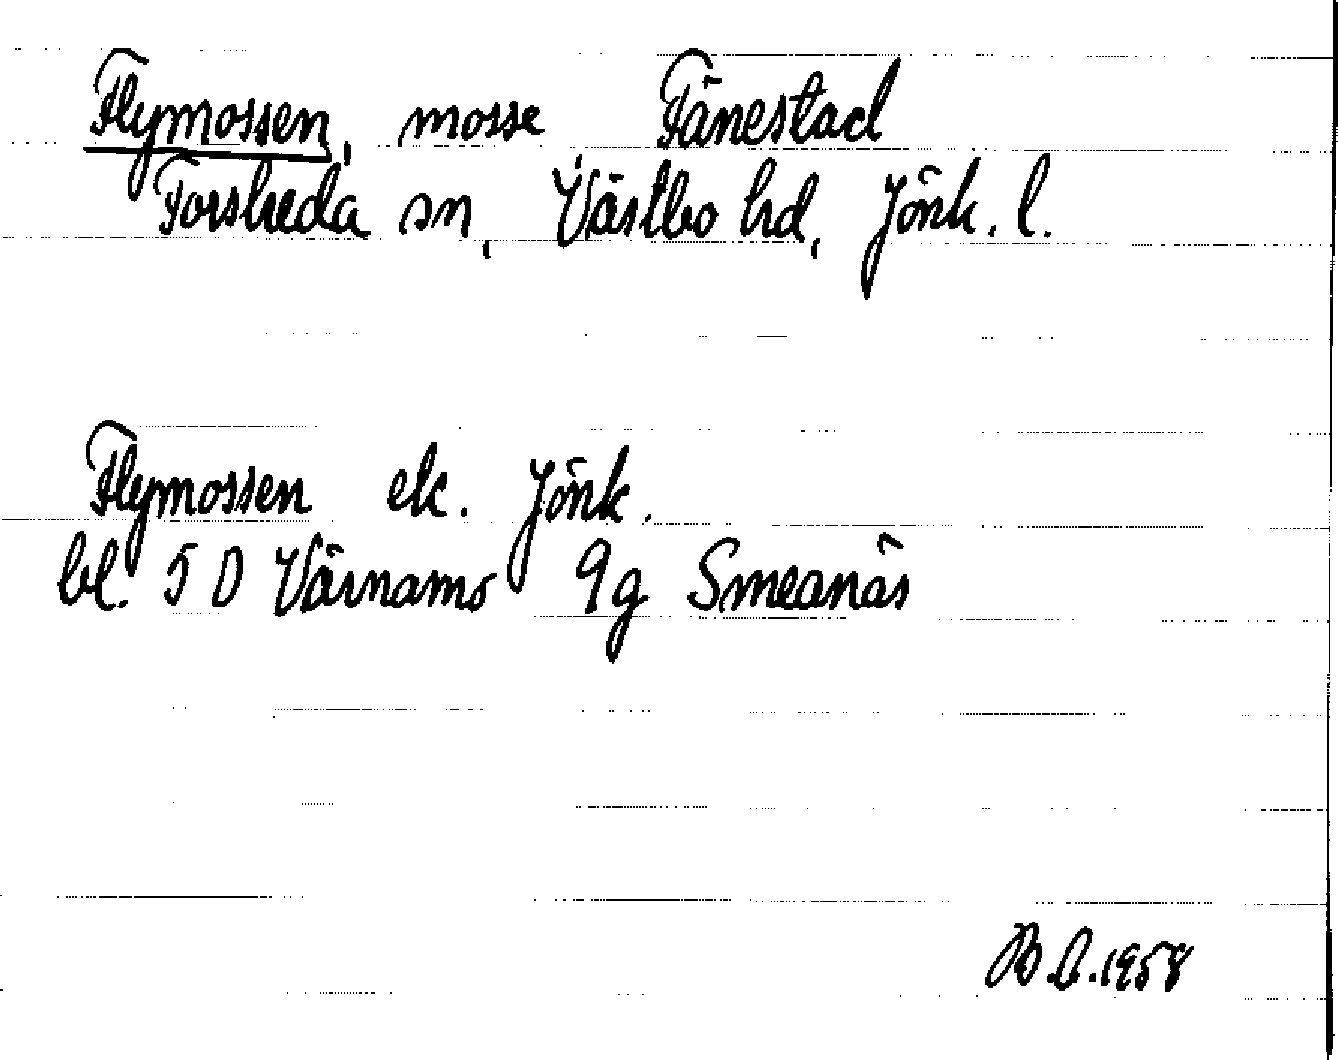 Flymossen, mosse Fänestad
Forsheda sn, Västbo hd, Jönk. l.
Flymossen ek. Jönk.
bl. 5 D Värnamo 9g Smeanäs
B.L.1958